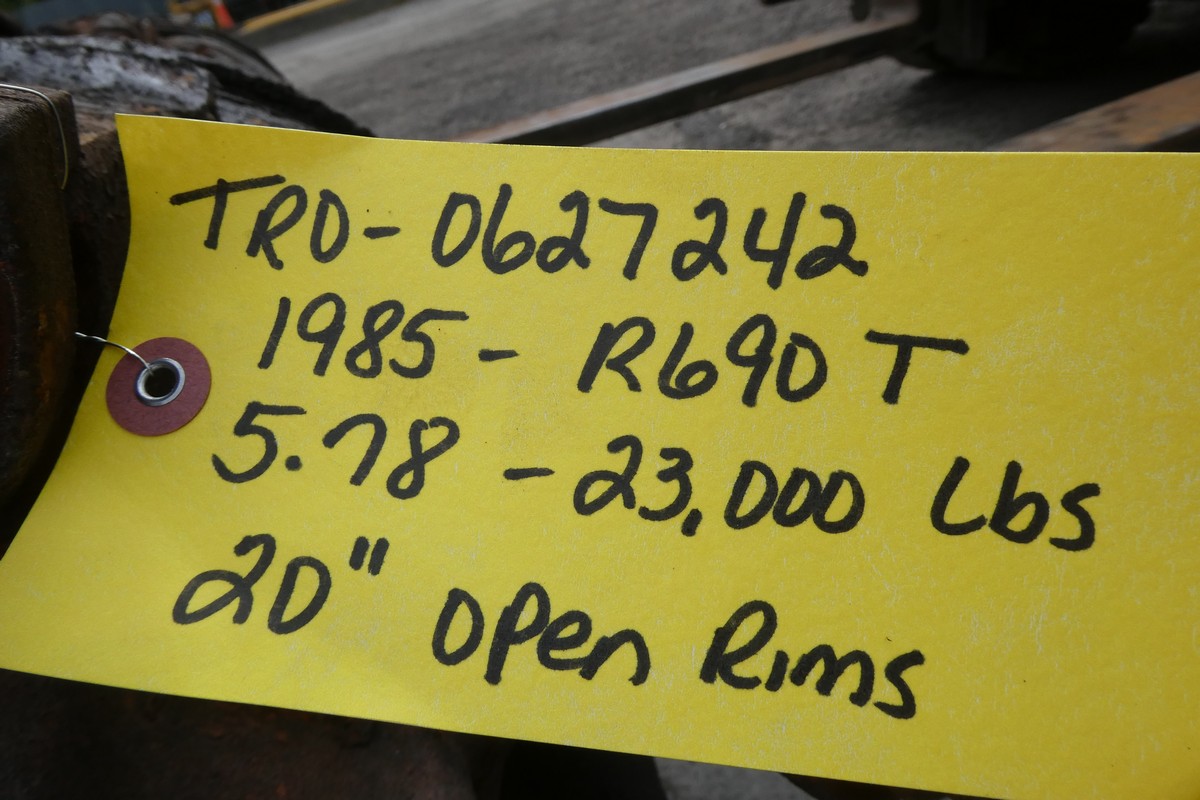 TRO-0627242
1985-R690T
5.78-23,000 Lbs
20" Open Rims